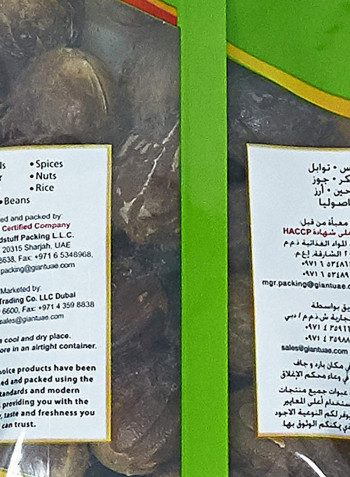 • Spices
• Nuts
• Rice
• Beans
and packed by:
Certified Company
dstuff Packing L.L.C.
20315 Sharjah, UAE
3638, Fax: +971 6 5348968,
packing@giantuae.com
Marketed by:
Trading Co. LLC Dubai
6600, Fax: +971 4 359 8838
sales@giantuae.com
a cool and dry place.
ore in an airtight container.
oice products have been
ed and packed using the
tandards and modern
providing you with the
, taste and freshness you
can trust.
• توابل
• جوز
• أرز
معبأة من قبل:
على شهادة HACCP
للمواد الغذائية ذ.م.م
الشارقة، إ.ع.م
mgr.packing@giantuae.c
بواسطة
ش ذ.م.م / دبي
sales@giantuae.com
في مكان بارد و جاف
في وعاء محكم الإغلاق
عبوات جميع منتجات
أعلى المعايير
لكم النوعية الاجود
يمكنكم الوثوق بها